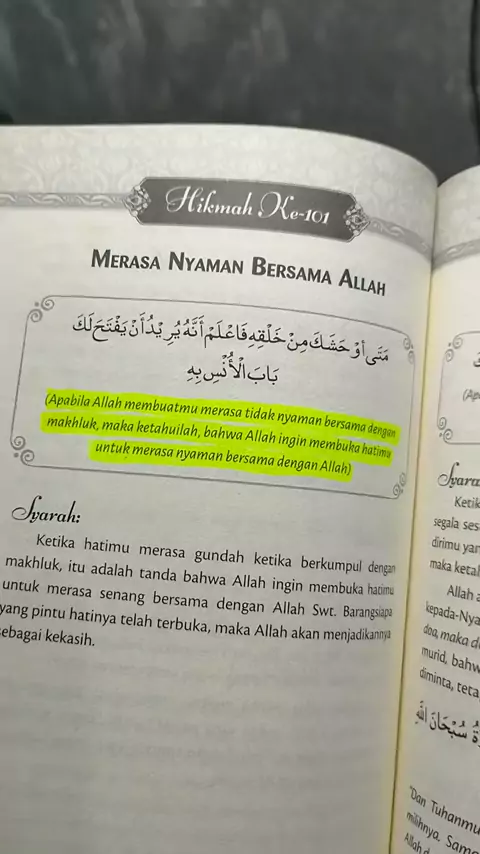 Hikmah Ke-101
MERASA NYAMAN BERSAMA ALLAH
مَتَى أَوْحَشَكَ مِنْ خَلْقِهِ فَاعْلَمْ أَنَّهُ يُرِيْدُ أَنْ يَفْتَحَ لَكَ
بَابَ الْأُنْسِ بِهِ
(Apabila Allah membuatmu merasa tidak nyaman bersama dengan
makhluk, maka ketahuilah, bahwa Allah ingin membuka hatimu
untuk merasa nyaman bersama dengan Allah)
Syarah:
Ketika hatimu merasa gundah ketika berkumpul dengan
makhluk, itu adalah tanda bahwa Allah ingin membuka hatimu
untuk merasa senang bersama dengan Allah Swt. Barangsiapa
yang pintu hatinya telah terbuka, maka Allah akan menjadikannya
sebagai kekasih.
segala
dirimu
maka
Allah
kepada-Nya
doa, maka
murid,
diminta,
سُبْحَانَ اللهِ
"Dan Tuhanmu
milihnya.
Allah